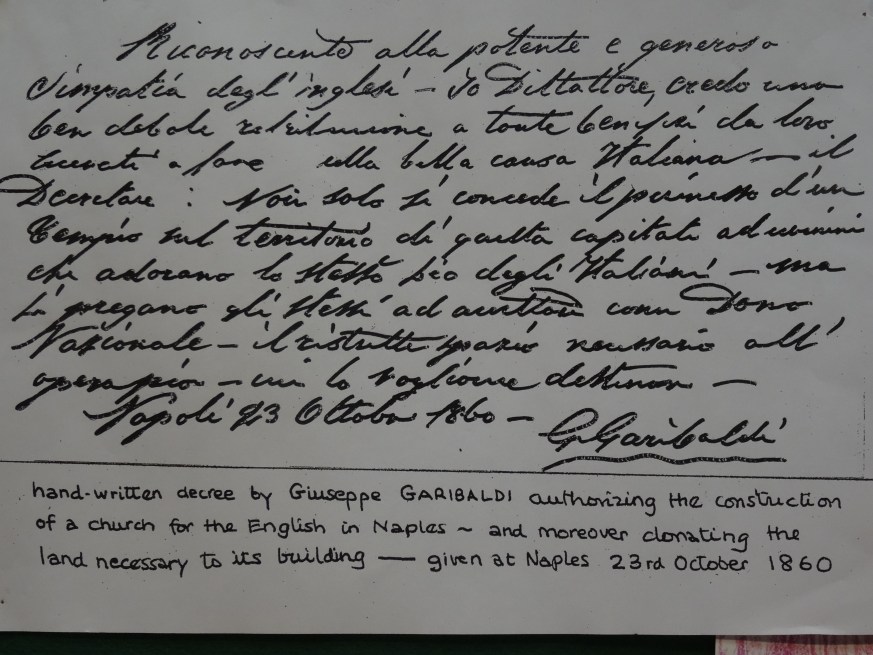 Riconoscente alla potente e generosa
Simpatia degl' inglesi – Io Dittattore, credo una
ben debole retribuzione a tante benefizi da loro
alla bella causa Italiana — il
Decretare : Non solo si concede il permesso d'un
tempio sul territorio di questa capitale ad uomini
che adorano lo stesso Dio degli Italiani – ma
Si pregano gli stessi ad accettare come Dono
Nazionale – il ristretto spazio necessario all'
opera pia – cui lo vogliono destinare –
Napoli 23 Ottobre 1860 –
G. Garibaldi
hand-written decree by Giuseppe GARIBALDI authorizing the construction
of a church for the English in Naples ~ and moreover donating the
land necessary to its building — given at Naples 23rd October 1860